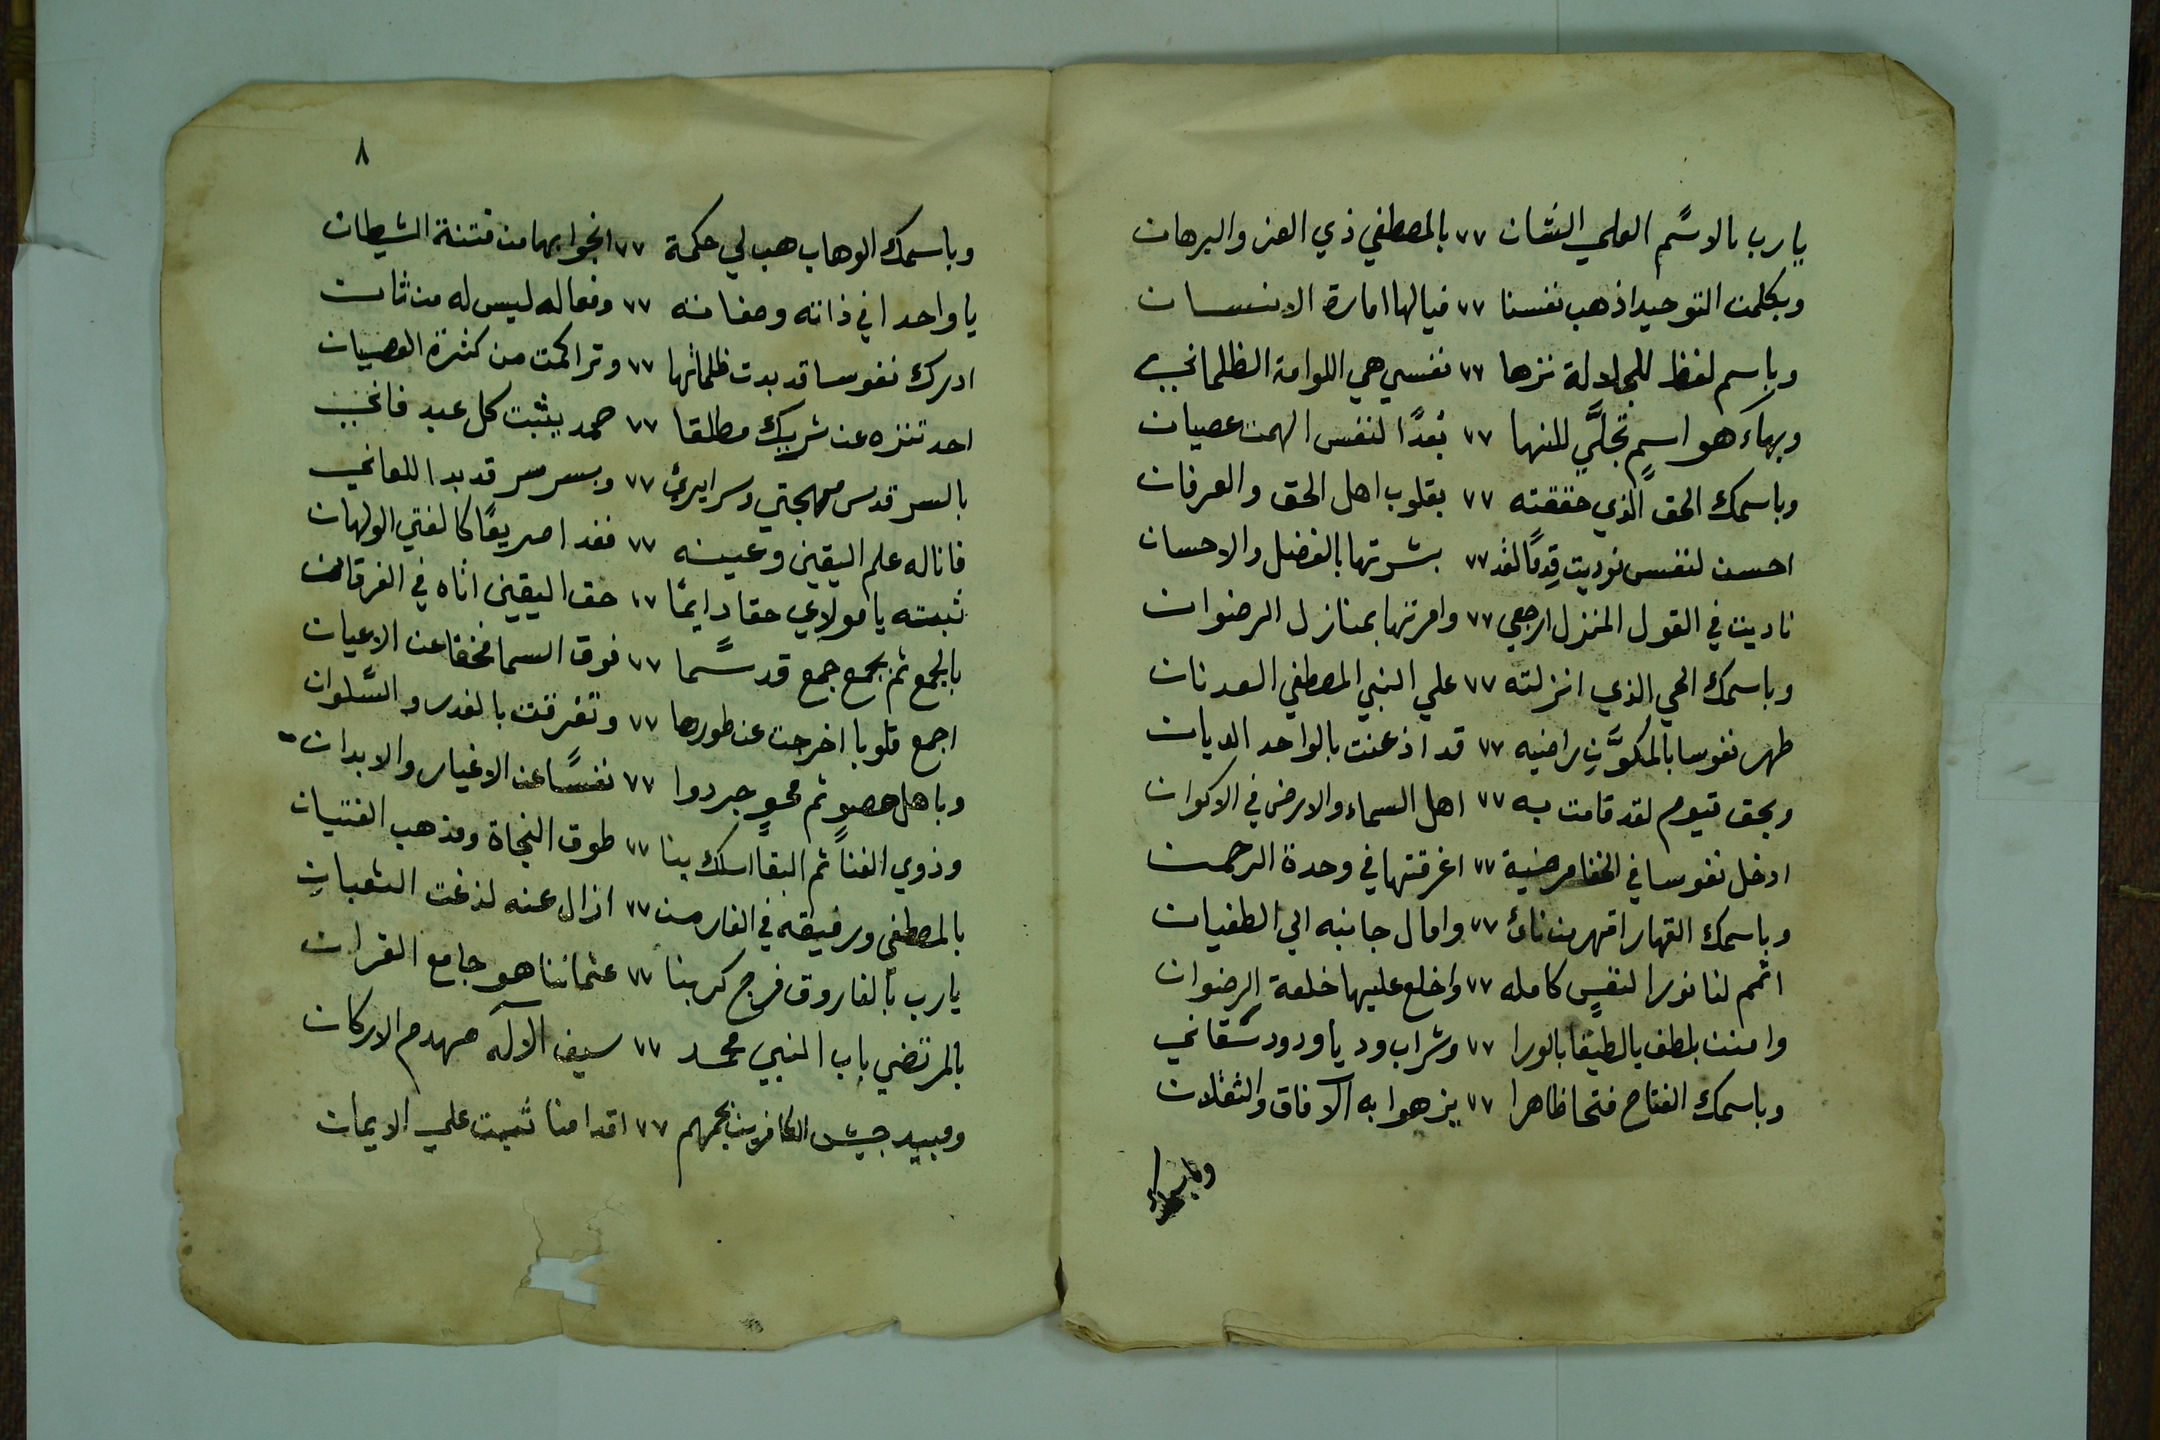 يا رب بالاسم العلي الشان ٧٧ بالمصطفي ذي العز والبرهان
وبكلمت التوحيد اذهب نفسنا ٧٧ فيالها امارة الانسان
وباسم لفظ للجلالة نزها ٧٧ نفسي هي اللوامة الظلماني
وبهاء هو اسمٍ تجلَّي للنها ٧٧ بُعدًا لنفس الهمت عصيان
وباسمك الحق الذي حققته ٧٧ بقلوب اهل الحق والعرفان
احسن لنفس نوديت قِدمًا لقد ٧٧ بشرتها بالفضل والاحسان
ناديت في القول المنزل ارجعي ٧٧ وامرتها بمنازل الرضوان
وباسمك الحي الذي انزلته ٧٧ علي النبي المصطفي العدنان
طهر نفوسا بالمكوَّنِ راضيه ٧٧ قد اذعنت بالواحد الديان
وبحق قيوم لقد قامت به ٧٧ اهل السماء والارض في الاكوان
ادخل نفوسا في الخفا مرضية ٧٧ اغرقتها في وحدة الرحمن
وباسمك القهار اقهر من نائ ٧٧ وامال جانبه الي الطغيان
اتمم لنا نورا لنفسٍ كامله ٧٧ واخلع عليها خلعة الرضوان
وامنن بلطف يا لطيفا بالورا ٧٧ وشراب ود يا ودود سقاني
وباسمك الفتاح فتحا ظاهرا ٧٧ يزهوا به الآفاق والثقلان
وباسمك
٨
وباسمك الوهاب هب لي حكمة ٧٧ انجوا بها من فتنة الشيطان
يا واحدا في ذاته وصفاته ٧٧ وفعاله ليس له من ثان
ادرك نفوسا قد بدت ظلماتها ٧٧ وتراكمت من كثرة العصيان
احد تنزه عن شريك مطلقا ٧٧ صمد يثبت كل عبد فاني
بالسر قدس مهجتي وسرايري ٧٧ وبسر سر قد بدا للعاني
فاناله علم اليقين وعينه ٧٧ فغدا صريعًا كالفتي الولهان
ثبته يا مولاي حقا دايمًا ٧٧ حق اليقين اتاه في الفرقان
بالجمع ثم بجمع جمع قد سما ٧٧ فوق السما فخفا عن الاعيان
اجمع قلوبا اخرجت عن طورها ٧٧ وتفرقت بالغدر والسلوان
وباهل صحوٍ ثم محوٍ جردوا ٧٧ نفسًا عن الاغيار والابدان
وذوي الفنا ثم البقا اسلك بنا ٧٧ طوق النجاة ومذهب الفتيان
بالمصطفي ورفيقه في الغار من ٧٧ ازال عنه لذغت الثعبان
يارب بالفاروق فرج كربنا ٧٧ عثماننا هو جامع القران
بالمرتضي باب النبي محمد ٧٧ سيف الآله مهدم الاركان
ومبيد جيش الكافرين بجمهم ٧٧ اقدامنا ثبت علي الايمان